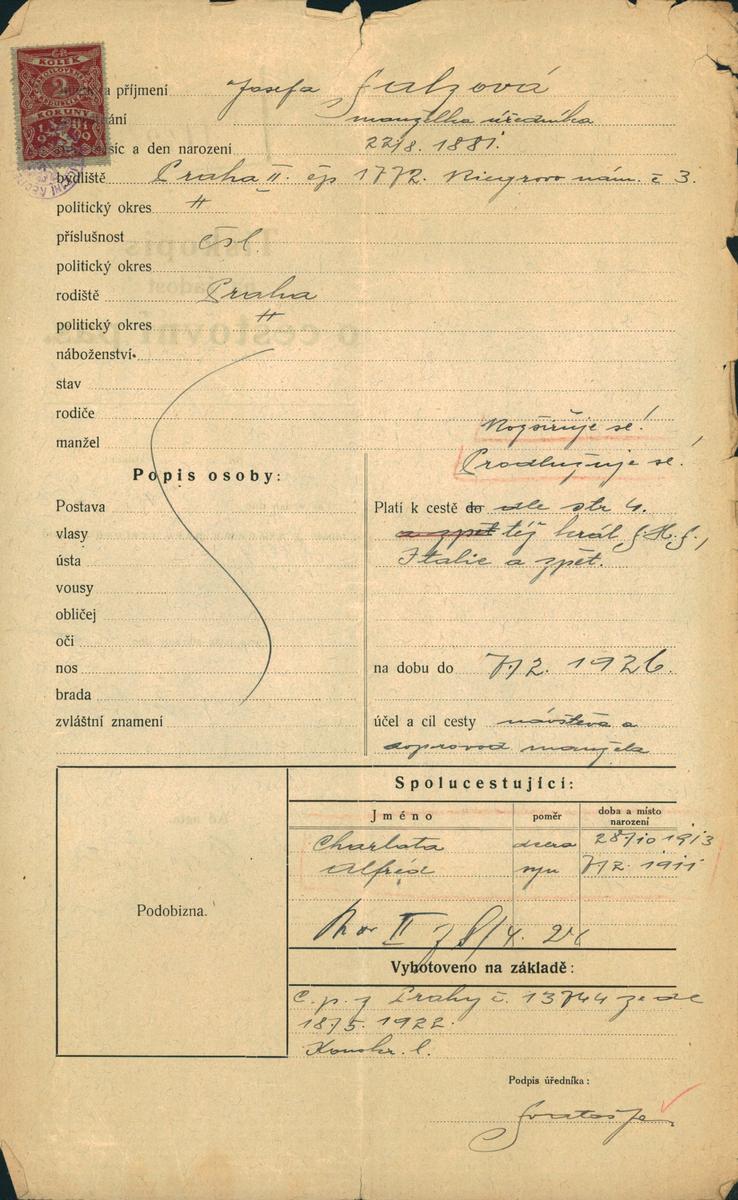 ČR
KOLEK
2
KORUNY
a příjmení Josefa Salzová
manželka úředníka
a den narození 22/8. 1881.
bydliště Praha II. čp 1772. Riegrovo nám. č 3.
politický okres "
příslušnost čsl.
politický okres
rodiště Praha
politický okres "
náboženství
stav
rodiče
Rozšiřuje se!
manžel
Prodlužuje se!
Popis osoby:
Postava
Platí k cestě do dle str 4.
vlasy
a zpět též král S.H.S.,
ústa
Italie a zpět.
vousy
obličej
oči
nos
na dobu do 7/2. 1926.
brada
zvláštní znamení
účel a cíl cesty návštěva a
doprovod manžela
Spolucestující:
Jméno poměr doba a místo narození
Charlota dcera 28/10 1913
Alfréd syn 7/2. 1911
II
Podobizna.
Vyhotoveno na základě:
C. p. z Prahy č. 13744 ze dne
18/5. 1922.
Konskr. l.
Podpis úředníka: